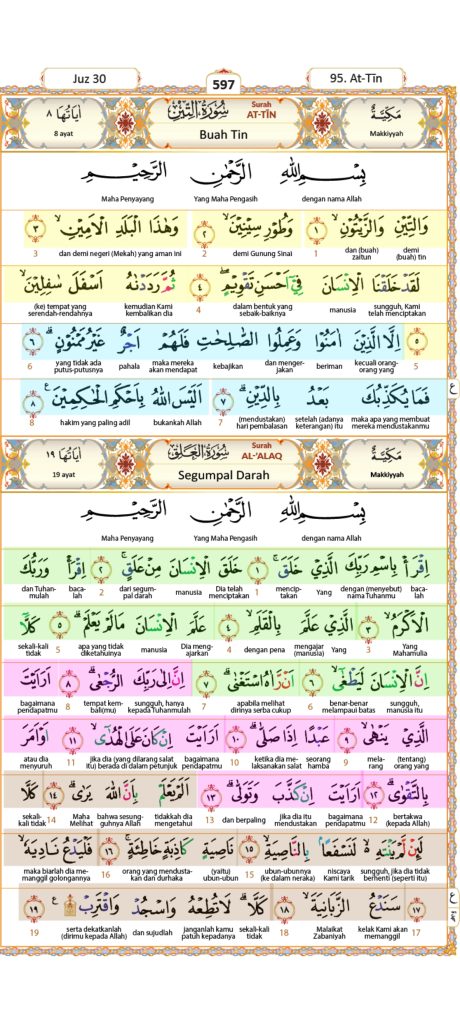 Juz 30
597
95. At-Tīn
مَكِّيَّةٌ
Makkiyyah
سُوْرَةُ التِّيْنِ
Surah AT-TĪN
Buah Tin
اٰيَاتُهَا ٨
8 ayat
بِسْمِ اللّٰهِ الرَّحْمٰنِ الرَّحِيْمِ
dengan nama Allah Yang Maha Pengasih Maha Penyayang
وَالتِّيْنِ وَالزَّيْتُوْنِۙ ١ وَطُوْرِ سِيْنِيْنَۙ ٢ وَهٰذَا الْبَلَدِ الْاَمِيْنِۙ ٣
demi (buah) tin dan (buah) zaitun 1 demi Gunung Sinai 2 dan demi negeri (Mekah) yang aman ini 3
لَقَدْ خَلَقْنَا الْاِنْسَانَ فِيْٓ اَحْسَنِ تَقْوِيْمٍۖ ٤ ثُمَّ رَدَدْنٰهُ اَسْفَلَ سٰفِلِيْنَۙ
sungguh, Kami telah menciptakan manusia dalam bentuk yang sebaik-baiknya 4 kemudian Kami kembalikan dia (ke) tempat yang serendah-rendahnya
٥ اِلَّا الَّذِيْنَ اٰمَنُوْا وَعَمِلُوا الصّٰلِحٰتِ فَلَهُمْ اَجْرٌ غَيْرُ مَمْنُوْنٍۗ ٦
5 kecuali orang-orang yang beriman dan mengerjakan kebajikan maka mereka akan mendapat pahala yang tidak ada putus-putusnya 6
فَمَا يُكَذِّبُكَ بَعْدُ بِالدِّيْنِۗ ٧ اَلَيْسَ اللّٰهُ بِاَحْكَمِ الْحٰكِمِيْنَ ٨
maka apa yang membuat mereka mendustakanmu setelah (adanya keterangan) itu (mendustakan) hari pembalasan 7 bukankah Allah hakim yang paling adil 8
ع
مَكِّيَّةٌ
Makkiyyah
سُوْرَةُ الْعَلَقِ
Surah AL-'ALAQ
Segumpal Darah
اٰيَاتُهَا ١٩
19 ayat
بِسْمِ اللّٰهِ الرَّحْمٰنِ الرَّحِيْمِ
dengan nama Allah Yang Maha Pengasih Maha Penyayang
اِقْرَأْ بِاسْمِ رَبِّكَ الَّذِيْ خَلَقَۚ ١ خَلَقَ الْاِنْسَانَ مِنْ عَلَقٍۚ ٢ اِقْرَأْ وَرَبُّكَ
bacalah dengan (menyebut) nama Tuhanmu Yang menciptakan 1 Dia telah menciptakan manusia dari segumpal darah 2 bacalah dan Tuhanmulah
الْاَكْرَمُۙ ٣ الَّذِيْ عَلَّمَ بِالْقَلَمِۙ ٤ عَلَّمَ الْاِنْسَانَ مَا لَمْ يَعْلَمْۗ ٥ كَلَّآ
Yang Mahamulia 3 Yang mengajar (manusia) dengan pena 4 Dia mengajarkan manusia apa yang tidak diketahuinya 5 sekali-kali tidak
اِنَّ الْاِنْسَانَ لَيَطْغٰىٓۙ ٦ اَنْ رَّاٰهُ اسْتَغْنٰىۗ ٧ اِنَّ اِلٰى رَبِّكَ الرُّجْعٰىۗ ٨ اَرَاَيْتَ
sungguh, manusia itu benar-benar melampaui batas 6 apabila melihat dirinya serba cukup 7 sungguh, hanya kepada Tuhanmulah tempat kembali(mu) 8 bagaimana pendapatmu
الَّذِيْ يَنْهٰىۙ ٩ عَبْدًا اِذَا صَلّٰىۗ ١٠ اَرَاَيْتَ اِنْ كَانَ عَلَى الْهُدٰىٓۙ ١١ اَوْ اَمَرَ
(tentang) orang yang melarang 9 seorang hamba ketika dia melaksanakan salat 10 bagaimana pendapatmu jika dia (yang dilarang salat itu) berada di dalam petunjuk 11 atau dia menyuruh
بِالتَّقْوٰىۗ ١٢ اَرَاَيْتَ اِنْ كَذَّبَ وَتَوَلّٰىۗ ١٣ اَلَمْ يَعْلَمْ بِاَنَّ اللّٰهَ يَرٰىۗ ١٤ كَلَّا
bertakwa (kepada Allah) 12 bagaimana pendapatmu jika dia itu mendustakan dan berpaling 13 tidakkah dia mengetahui bahwa sesungguhnya Allah Maha Melihat 14 sekali-kali tidak
لَىِٕنْ لَّمْ يَنْتَهِ ەۙ لَنَسْفَعًاۢ بِالنَّاصِيَةِۙ ١٥ نَاصِيَةٍ كَاذِبَةٍ خَاطِئَةٍۚ ١٦ فَلْيَدْعُ نَادِيَهٗۙ
sungguh, jika dia tidak berhenti (seperti itu) niscaya Kami tarik ubun-ubunnya (ke dalam neraka) 15 (yaitu) ubun-ubun orang yang mendustakan dan durhaka 16 maka biarlah dia memanggil golongannya
١٧ سَنَدْعُ الزَّبَانِيَةَۙ ١٨ كَلَّاۗ لَا تُطِعْهُ وَاسْجُدْ وَاقْتَرِبْ ۩ ١٩
17 kelak Kami akan memanggil Malaikat Zabaniyah 18 sekali-kali tidak janganlah kamu patuh kepadanya dan sujudlah serta dekatkanlah (dirimu kepada Allah) 19
ع